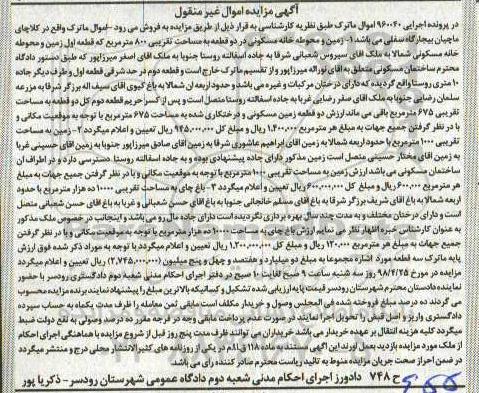 آگهی مزایده اموال غیر منقول
در پرونده اجرایی ۹۶۰۰۴۰ اموال ماترک طبق نظریه کارشناسی به قرار ذیل از طریق مزایده به فروش می رود - اموال ماترک واقع در کلاچای
ماچیان بیجارگاه سفلی می باشد ۱- زمین و محوطه خانه مسکونی در دو قطعه به مساحت تقریبی ۸۰۰ مترمربع که قطعه اول زمین و محوطه
خانه مسکونی شمالا به ملک آقای سیروس شعبانی شرقا به جاده اسفالته روستا جنوبا به ملک آقای اصغر میرزاپور که طبق دستور دادگاه
محترم ساختمان مسکونی متعلق به آقای نوراله میرزاپور و از تقسیم ماترک خارج است و قطعه دوم در حد شرقی قطعه اول و طرف دیگر جاده
۱۰ متری روستا واقع گردیده که دارای درختان مرکبات و غیره می باشد و حدود اربعه ان شمالا به باغ کیوی آقای سیف اله برزگر شرقا به مزرعه
سلمان رضایی جنوبا به ملک آقای صفر رضایی غربا به جاده اسفالته روستا متصل است و پس از کسر حریم قطعه دوم کل دو قطعه به مساحت
تقریبی ۶۷۵ مترمربع باقی می ماند ارزش دو قطعه زمین مسکونی و درختکاری شده به مساحت ۶۷۵ مترمربع با توجه به موقعیت مکانی و
با در نظر گرفتن جمیع جهات به مبلغ هر مترمربع ۱,۴۰۰,۰۰۰ ریال و مبلغ کل ۹۴۵,۰۰۰,۰۰۰ ریال تعیین و اعلام میگردد ۲- زمین به مساحت
تقریبی ۱۰۰۰ مترمربع با حدود اربعه شمالا به زمین آقای ابراهیم عاشوری شرقا به زمین آقای صادق میرزاپور جنوبا به زمین آقای حسینی غربا
به زمین آقای بختار حسینی متصل است زمین مذکور دارای جاده پیشنهادی بوده و به جاده اسفالته روستا دسترسی دارد و در اطراف ان
ساختمان مسکونی می باشد ارزش زمین به مساحت تقریبی ۱۰۰۰ مترمربع با توجه به موقعیت مکانی و با در نظر گرفتن جمیع جهات به مبلغ
هر مترمربع ۶۰۰,۰۰۰ ریال و مبلغ کل ۶۰۰,۰۰۰,۰۰۰ ریال تعیین و اعلام میگردد ۳- باغ چای به مساحت تقریبی ۱۰۰۰۰ ده هزار مترمربع با حدود
اربعه شمالا به باغ آقای شریف برزگر شرقا به باغ آقای مسلم خانجانی جنوبا به باغ آقای حسن شعبانی و غربا به باغ آقای حسن شعبانی متصل
است و دارای درختان مختلف و به مدت چند سال بهره برداری نگردیده است دارای جاده مال رو می باشد و اینجانب در خصوص ملک مذکور
به عنوان کارشناس خبره اظهار نظر می نمایم ارزش باغ چای به مساحت ۱۰۰۰۰ ده هزار مترمربع با توجه به موقعیت مکانی و با در نظر گرفتن
جمیع جهات به مبلغ هر مترمربع ۱۲۰,۰۰۰ ریال و مبلغ کل ۱,۲۰۰,۰۰۰,۰۰۰ ریال تعیین و اعلام میگردد با توجه به موراد ذکر شده فوق ارزش
پایه ماترک سه قطعه مورد اشاره مجموعا به مبلغ دو میلیارد و هفتصد و چهل و پنج میلیون (۲,۷۴۵,۰۰۰,۰۰۰) ریال تعیین و اعلام میگردد /
مزایده در مورخ ۹۸/۴/۲۵ روز سه شنبه ساعت ۹ صبح لغایت ۱۰ صبح در دفتر اجرای احکام مدنی شعبه دوم دادگستری رودسر با حضور
نماینده دادستان محترم شهرستان رودسر قیمت پایه ارزیابی شده تشکیل و کسانیکه بالاترین مبلغ را پیشنهاد نمایند برنده مزایده محسوب
می گردند ده درصد مبلغ فروخته شده فی المجلس وصول و خریدار مکلف است مابقی ثمن معامله را ظرف مدت یکماه به حساب سپرده
دادگستری واریز و اصل فیش را تحویل اجرا نمایند در صورت عدم پرداخت مابقی وجه در فرجه مقرر ده درصد دولتی به نفع دولت ضبط
میگردد کلیه هزینه انتقال بر عهده خریدار می باشد خریداران می توانند ظرف مدت پنج روز قبل از شروع مزایده با هماهنگی اجرای احکام
از ملک مورد مزایده بازدید بعمل آورند این آگهی مستند به ماده ۱۱۸ ق.ا.م در یکی از روزنامه های کثیر الانتشار محلی درج و منتشر میگردد
در ضمن احراز صحت جریان مزایده منوط به تائید ریاست محترم صادر کننده رای می باشد.
ح ۷۴۸ دادورز اجرای احکام مدنی شعبه دوم دادگاه عمومی شهرستان رودسر - ذکریا پور